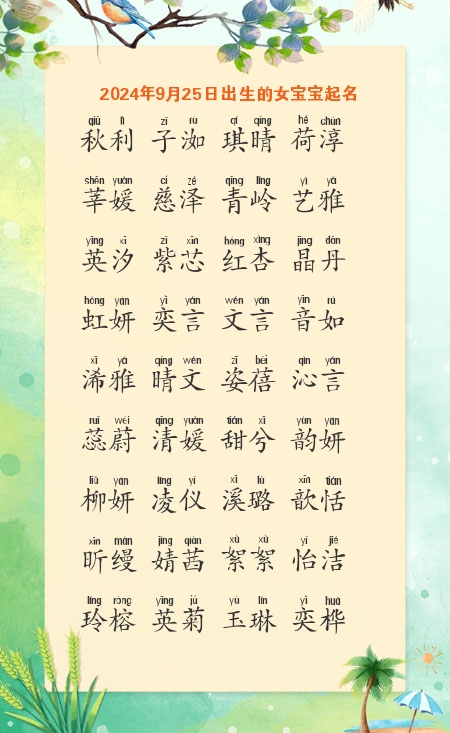 2024年9月25日出生的女宝宝起名
qiū lì zǐ rù qí qíng hé chún
秋利 子洳 琪晴 荷淳
shēn yuàn cí zé qīng lǐng yì yǎ
莘媛 慈泽 青岭 艺雅
yīng xī zǐ xīn hóng xìng jīng dān
英汐 紫芯 红杏 晶丹
hóng yán yì yán wén yán yīn rú
虹妍 奕言 文言 音如
xī yǎ qíng wén zī bèi qìn yán
浠雅 晴文 姿蓓 沁言
ruǐ wèi qīng yuàn tián xī yùn yán
蕊蔚 清媛 甜兮 韵妍
liǔ yán líng yí xī lù xīn tián
柳妍 凌仪 溪璐 歆恬
xīn màn jìng qiàn xù xù yí jié
昕缦 婧茜 絮絮 怡洁
líng róng yīng jú yù lín yì huà
玲榕 英菊 玉琳 奕桦